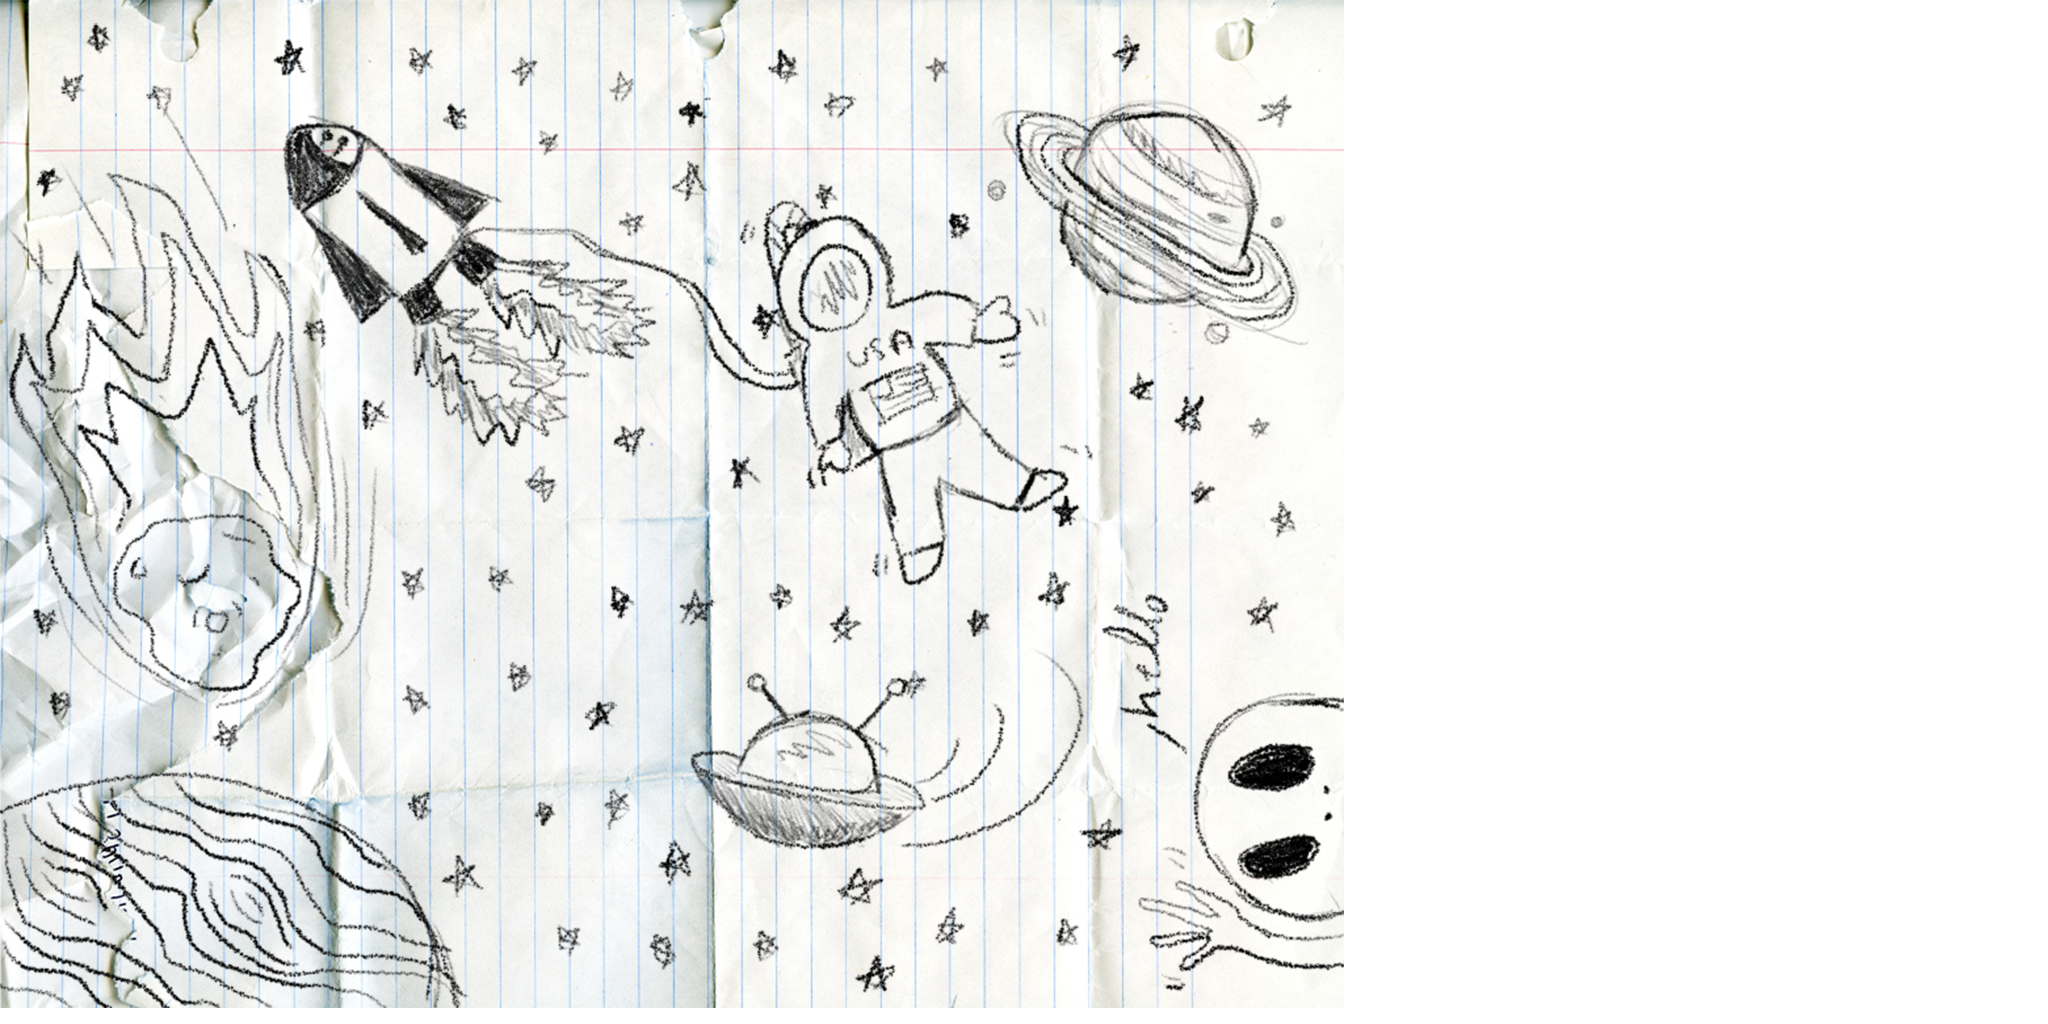 USA
hello